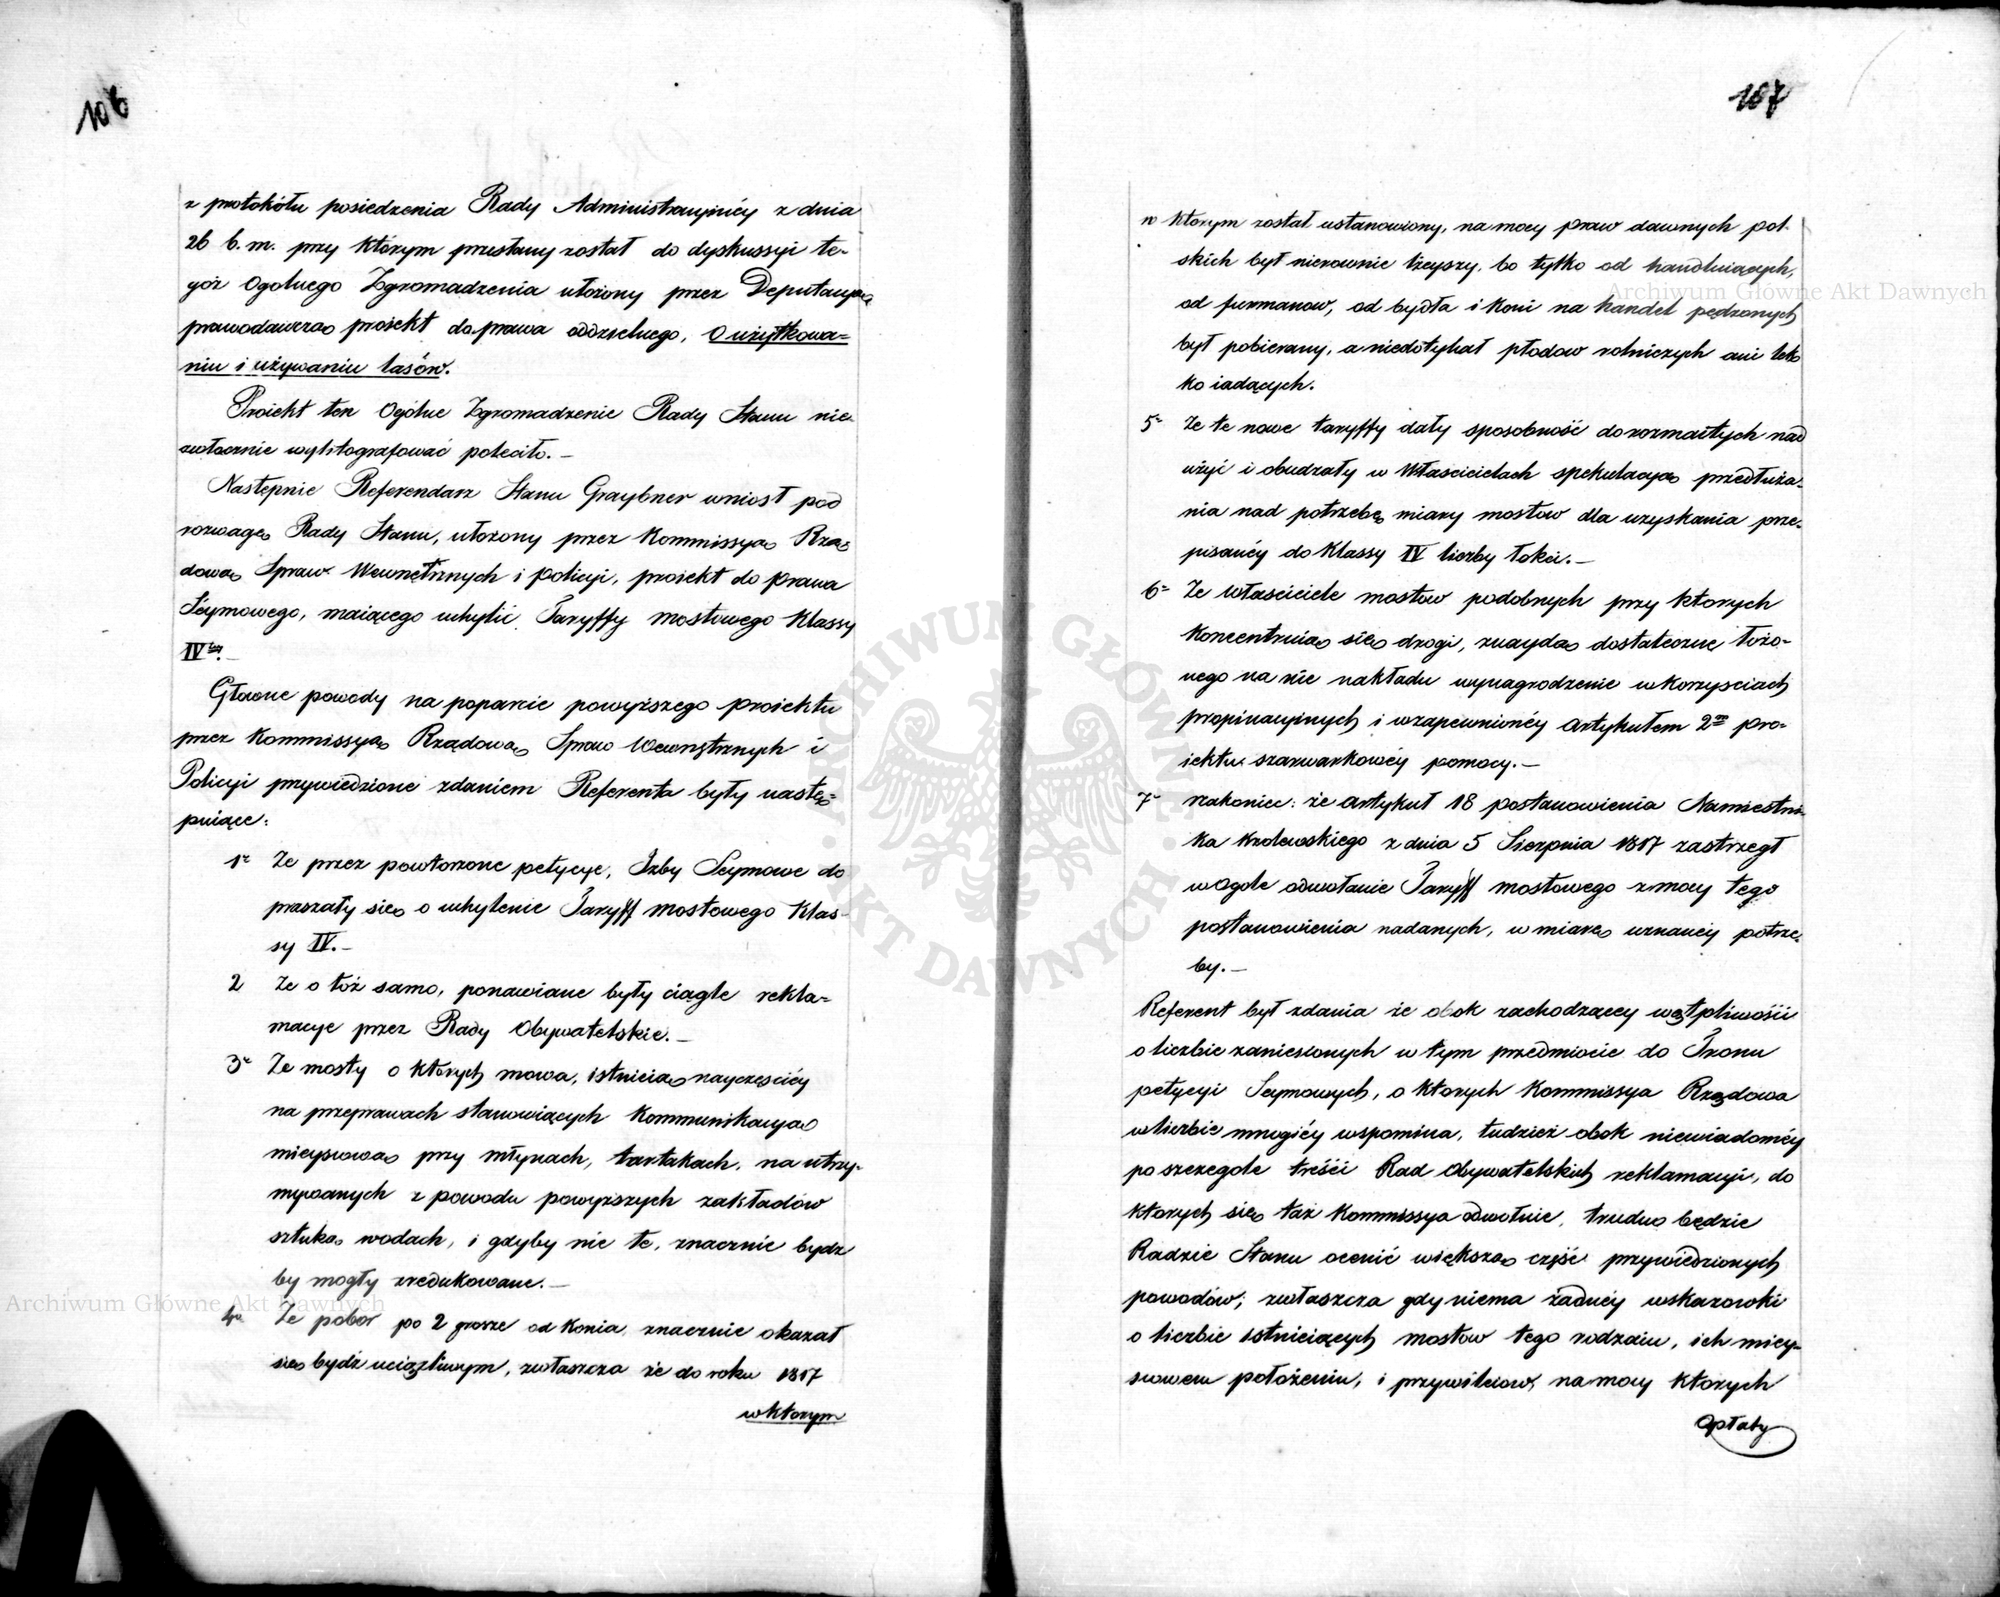 106
z protokółu posiedzenia Rady Administracyinéy z dnia
26 b. m. przy którym przesłany został do dyskussyi te-
goż Ogolnego Zgromadzenia ułożony przez Deputacyą
prawodawczą proiekt do prawa oddzielnego, O użytkowa=
niu i używaniu lasów.
Proiekt ten Ogólne Zgromadzenie Rady Stanu nie-
zwłocznie wylitografować poleciło.—
Następnie Referendarz Stanu Graybner wniosł pod
rozwagę Rady Stanu, ułożony przez Kommissyą Rzą=
dową Spraw Wewnętrznych i policyi, proiekt do prawa
Séymowego, maiącego uchylić Taryffy mostowego Klassy
IVtey.—
Głowne powody na poparcie powyższego proiektu
przez Kommissyą Rządową Spraw Wewnętrznych i
Policyi przywiedzione zdaniem Referenta były nastę=
puiące:
1e Że przez powtorzone petycye, Izby Seymowe do
praszały się o uchylenie Taryff mostowego Klas-
sy IV.—
2 Że o tóż samo, ponawiane były ciągle rekla=
macye przez Rady Obywatelskie.—
3e Że mosty o których mowa, istnieią nayczęściéy
na przeprawach stanowiących Kommunikacyą
mieyscową przy młynach, tartakach, na utrzy-
mywanych z powodu powyższych zakładów
sztuką wodach, i gdyby nie te, znacznie bydz
by mogły zredukowane.—
4e Że pobór po 2 grosze od Konia, znacznie okazał
się bydź uciążliwym, zwłaszcza że do roku 1817
w ktorym
107
w ktorym został ustanowiony, na mocy praw dawnych pol-
skich był nierownie lżeyszy, bo tylko od handluiących,
od furmanow, od bydła i koni na handel pędzonych
był pobierany, a niedotykał płodow rolniczych ani lek-
ko iadących.
5e Że te nowe taryffy dały sposobność do rozmaitych nad
użyć i obudzały w Właścicielach spekulacyą przedłuża-
nia nad potrzebę miary mostow dla uzyskania prze-
pisanéy do Klassy IV liczby łokci.—
6e Że własciciele mostow podobnych przy ktorych
koncentruią się drogi, znaydą dostateczne łożo-
nego na nie nakładu wynagrodzenie w korzysciach
propinacyinych i w zapewnionéy artykułem 2m pro-
iektu szarwarkowéy pomocy.—
7e nakoniec: że artykuł 18 postanowienia Namiestni-
ka Krolewskiego z dnia 5 Sierpnia 1817 zastrzegł
w ogole odwołanie Taryff mostowego z mocy tego
postanowienia nadanych, w miarę uznanéy potrze-
by.—
Referent był zdania że obok zachodzącey wątpliwości
o liczbie zaniesionych w tym przedmiocie do Tronu
petycyi Seymowych, o ktorych Kommissya Rządowa
w liczbie mnogiéy wspomina, tudzież obok niewiadoméy
po szczegole treści Rad Obywatelskich reklamacyi, do
ktorych się taż Kommissya odwołuie, trudno będzie
Radzie Stanu ocenić większą część przywiedzionych
powodów; zwłaszcza gdy niema żadnéy wskazowki
o liczbie istnieiących mostow tego rodzaiu, ich miey-
scowem położeniu, i przywileiow, na mocy ktorych
Opłaty
Archiwum Główne Akt Dawnych
Archiwum Główne Akt Dawnych
ARCHIWUM GŁÓWNE · AKT DAWNYCH ·